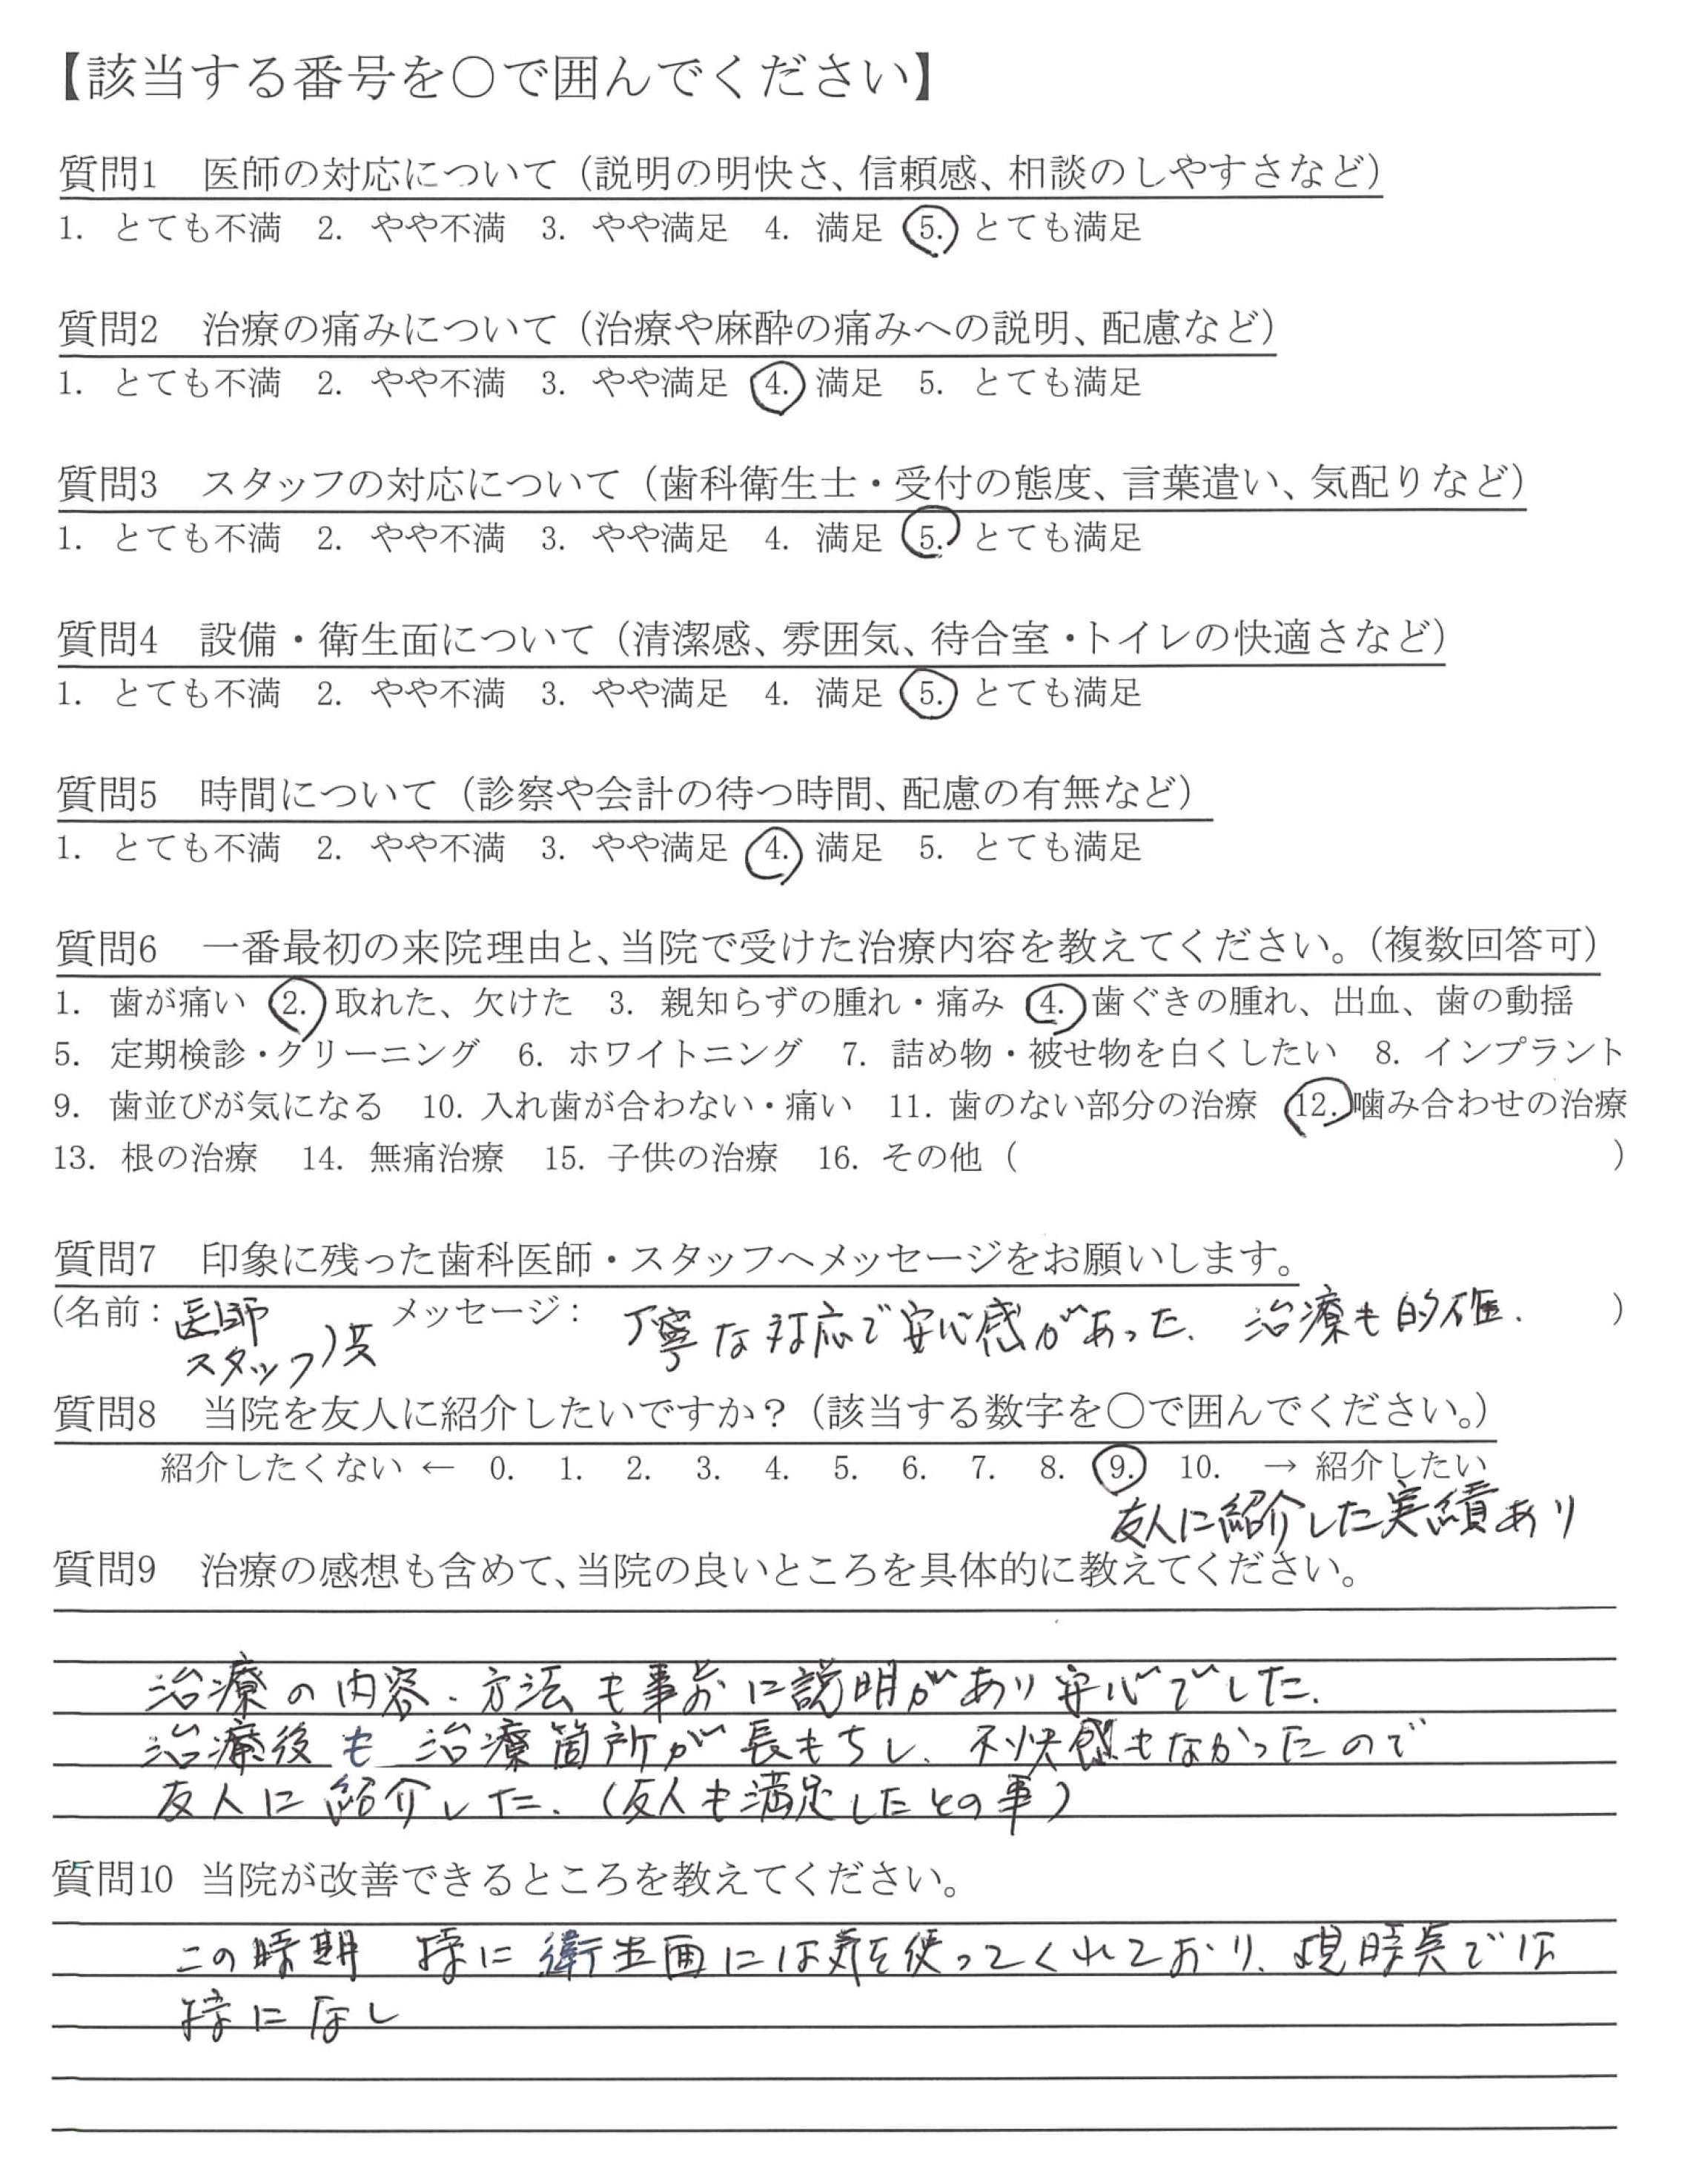 【該当する番号を○で囲んでください】
質問1　医師の対応について（説明の明快さ、信頼感、相談のしやすさなど）
1. とても不満　2. やや不満　3. やや満足　4. 満足　5. とても満足
質問2　治療の痛みについて（治療や麻酔の痛みへの説明、配慮など）
1. とても不満　2. やや不満　3. やや満足　4. 満足　5. とても満足
質問3　スタッフの対応について（歯科衛生士・受付の態度、言葉遣い、気配りなど）
1. とても不満　2. やや不満　3. やや満足　4. 満足　5. とても満足
質問4　設備・衛生面について（清潔感、雰囲気、待合室・トイレの快適さなど）
1. とても不満　2. やや不満　3. やや満足　4. 満足　5. とても満足
質問5　時間について（診察や会計の待つ時間、配慮の有無など）
1. とても不満　2. やや不満　3. やや満足　4. 満足　5. とても満足
質問6　一番最初の来院理由と、当院で受けた治療内容を教えてください。（複数回答可）
1. 歯が痛い　2. 取れた、欠けた　3. 親知らずの腫れ・痛み　4. 歯ぐきの腫れ、出血、歯の動揺
5. 定期検診・クリーニング　6. ホワイトニング　7. 詰め物・被せ物を白くしたい　8. インプラント
9. 歯並びが気になる　10. 入れ歯が合わない・痛い　11. 歯のない部分の治療　12. 噛み合わせの治療
13. 根の治療　14. 無痛治療　15. 子供の治療　16. その他（　）
質問7　印象に残った歯科医師・スタッフへメッセージをお願いします。
（名前：医師　メッセージ：　丁寧な対応で安心感があった。治療も的確.　）
スタッフ）共
質問8　当院を友人に紹介したいですか？（該当する数字を○で囲んでください。）
紹介したくない ← 0. 1. 2. 3. 4. 5. 6. 7. 8. 9. 10. → 紹介したい
友人に紹介した実績あり
質問9　治療の感想も含めて、当院の良いところを具体的に教えてください。
治療の内容、方法も事前に説明があり安心でした.
治療後も治療箇所が長もちし、不快感もなかったので
友人に紹介した.（友人も満足したとの事）
質問10　当院が改善できるところを教えてください。
この時期　特に衛生面には気を使ってくれており、現時点では
特になし